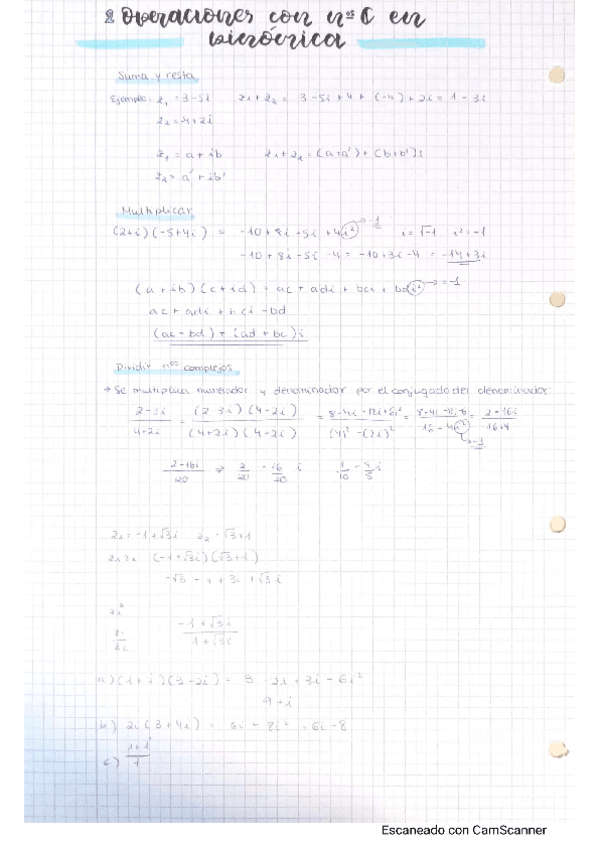 2 Operaciones con nºs C en
binómica
Suma y resta
Ejemplo: z₁ = 3-5i   z₁+z₂ = 3-5i+4+(-4)+2i = 1-3i
z₂ = -4+2i
z₁ = a+ib   z₁+z₂ = (a+a')+(b+b')i
z₂ = a'+ib'
Multiplicar
(2+i)(-5+4i) = -10+8i-5i+4i² → -1   i=√-1   i²=-1
-10+8i-5i-4 = -10+3i-4 = -14+3i
(a+ib)(c+id) = ac+adi+bci+bdi² → =-1
ac+adi+bci-bd
(ac-bd)+(ad+bc)i
Dividir nºs complejos
→ Se multiplica numerador y denominador por el conjugado del denominador
2-3i/4+2i = (2-3i)(4-2i)/(4+2i)(4-2i) = 8-4i-12i+6i²/(4)²-(2i)² = 8-4i-12i-6/16-4i² → -1 = 2-16i/16+4
2-16i/20 ⇒ 2/20 - 16/20 i   1/10 - 4/5 i
z₁ = -1+√3i   z₂ = √3+i
(-1+√3i)(√3+i)
-√3 - i + 3i + √3i
-1+√3i
a) (1+i)(3-2i) = 3-2i+3i-6i²
9+i
b) 2i(3+4i) = 6i+8i² = 6i-8
c) 1+i/1
Escaneado con CamScanner